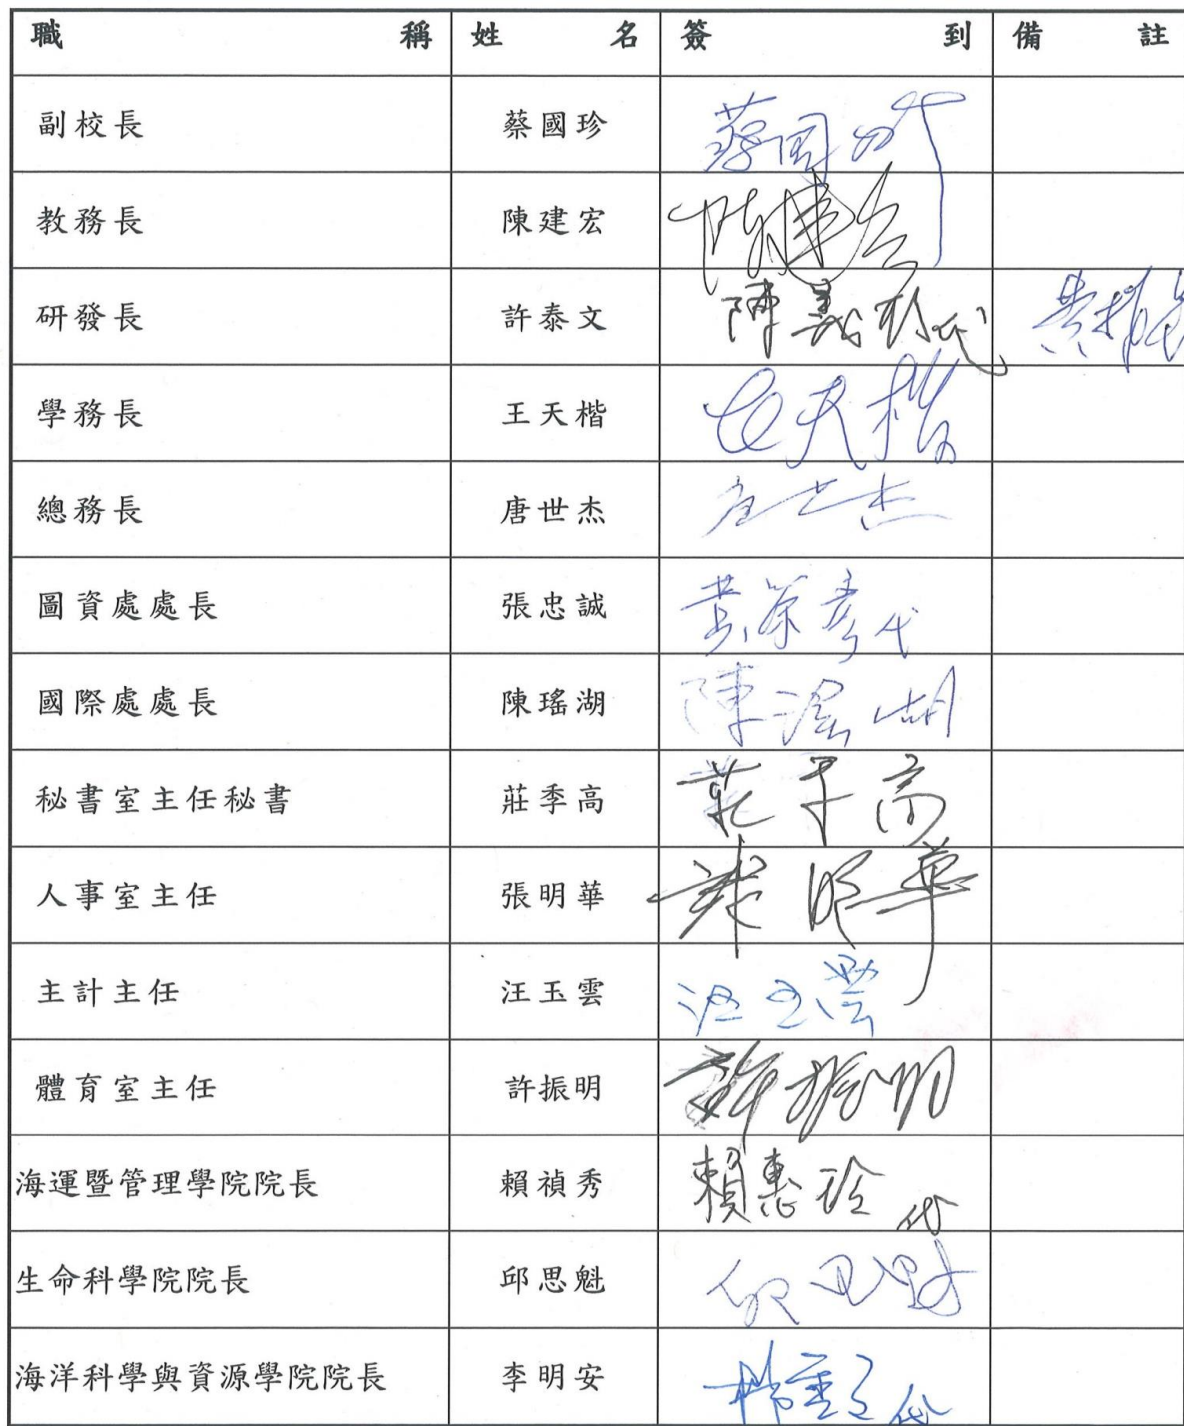 職稱 姓名 簽到 備註
副校長 蔡國珍 蔡国珍
教務長 陳建宏 陳建宏
研發長 許泰文 陳義 代
學務長 王天楷 王天楷
總務長 唐世杰 唐世杰
圖資處處長 張忠誠 代
國際處處長 陳瑤湖 陳瑤湖
秘書室主任秘書 莊季高 莊季高
人事室主任 張明華 張明華
主計主任 汪玉雲 汪玉雲
體育室主任 許振明 許振明
海運暨管理學院院長 賴禎秀 賴惠玲 代
生命科學院院長 邱思魁 邱思魁
海洋科學與資源學院院長 李明安 代